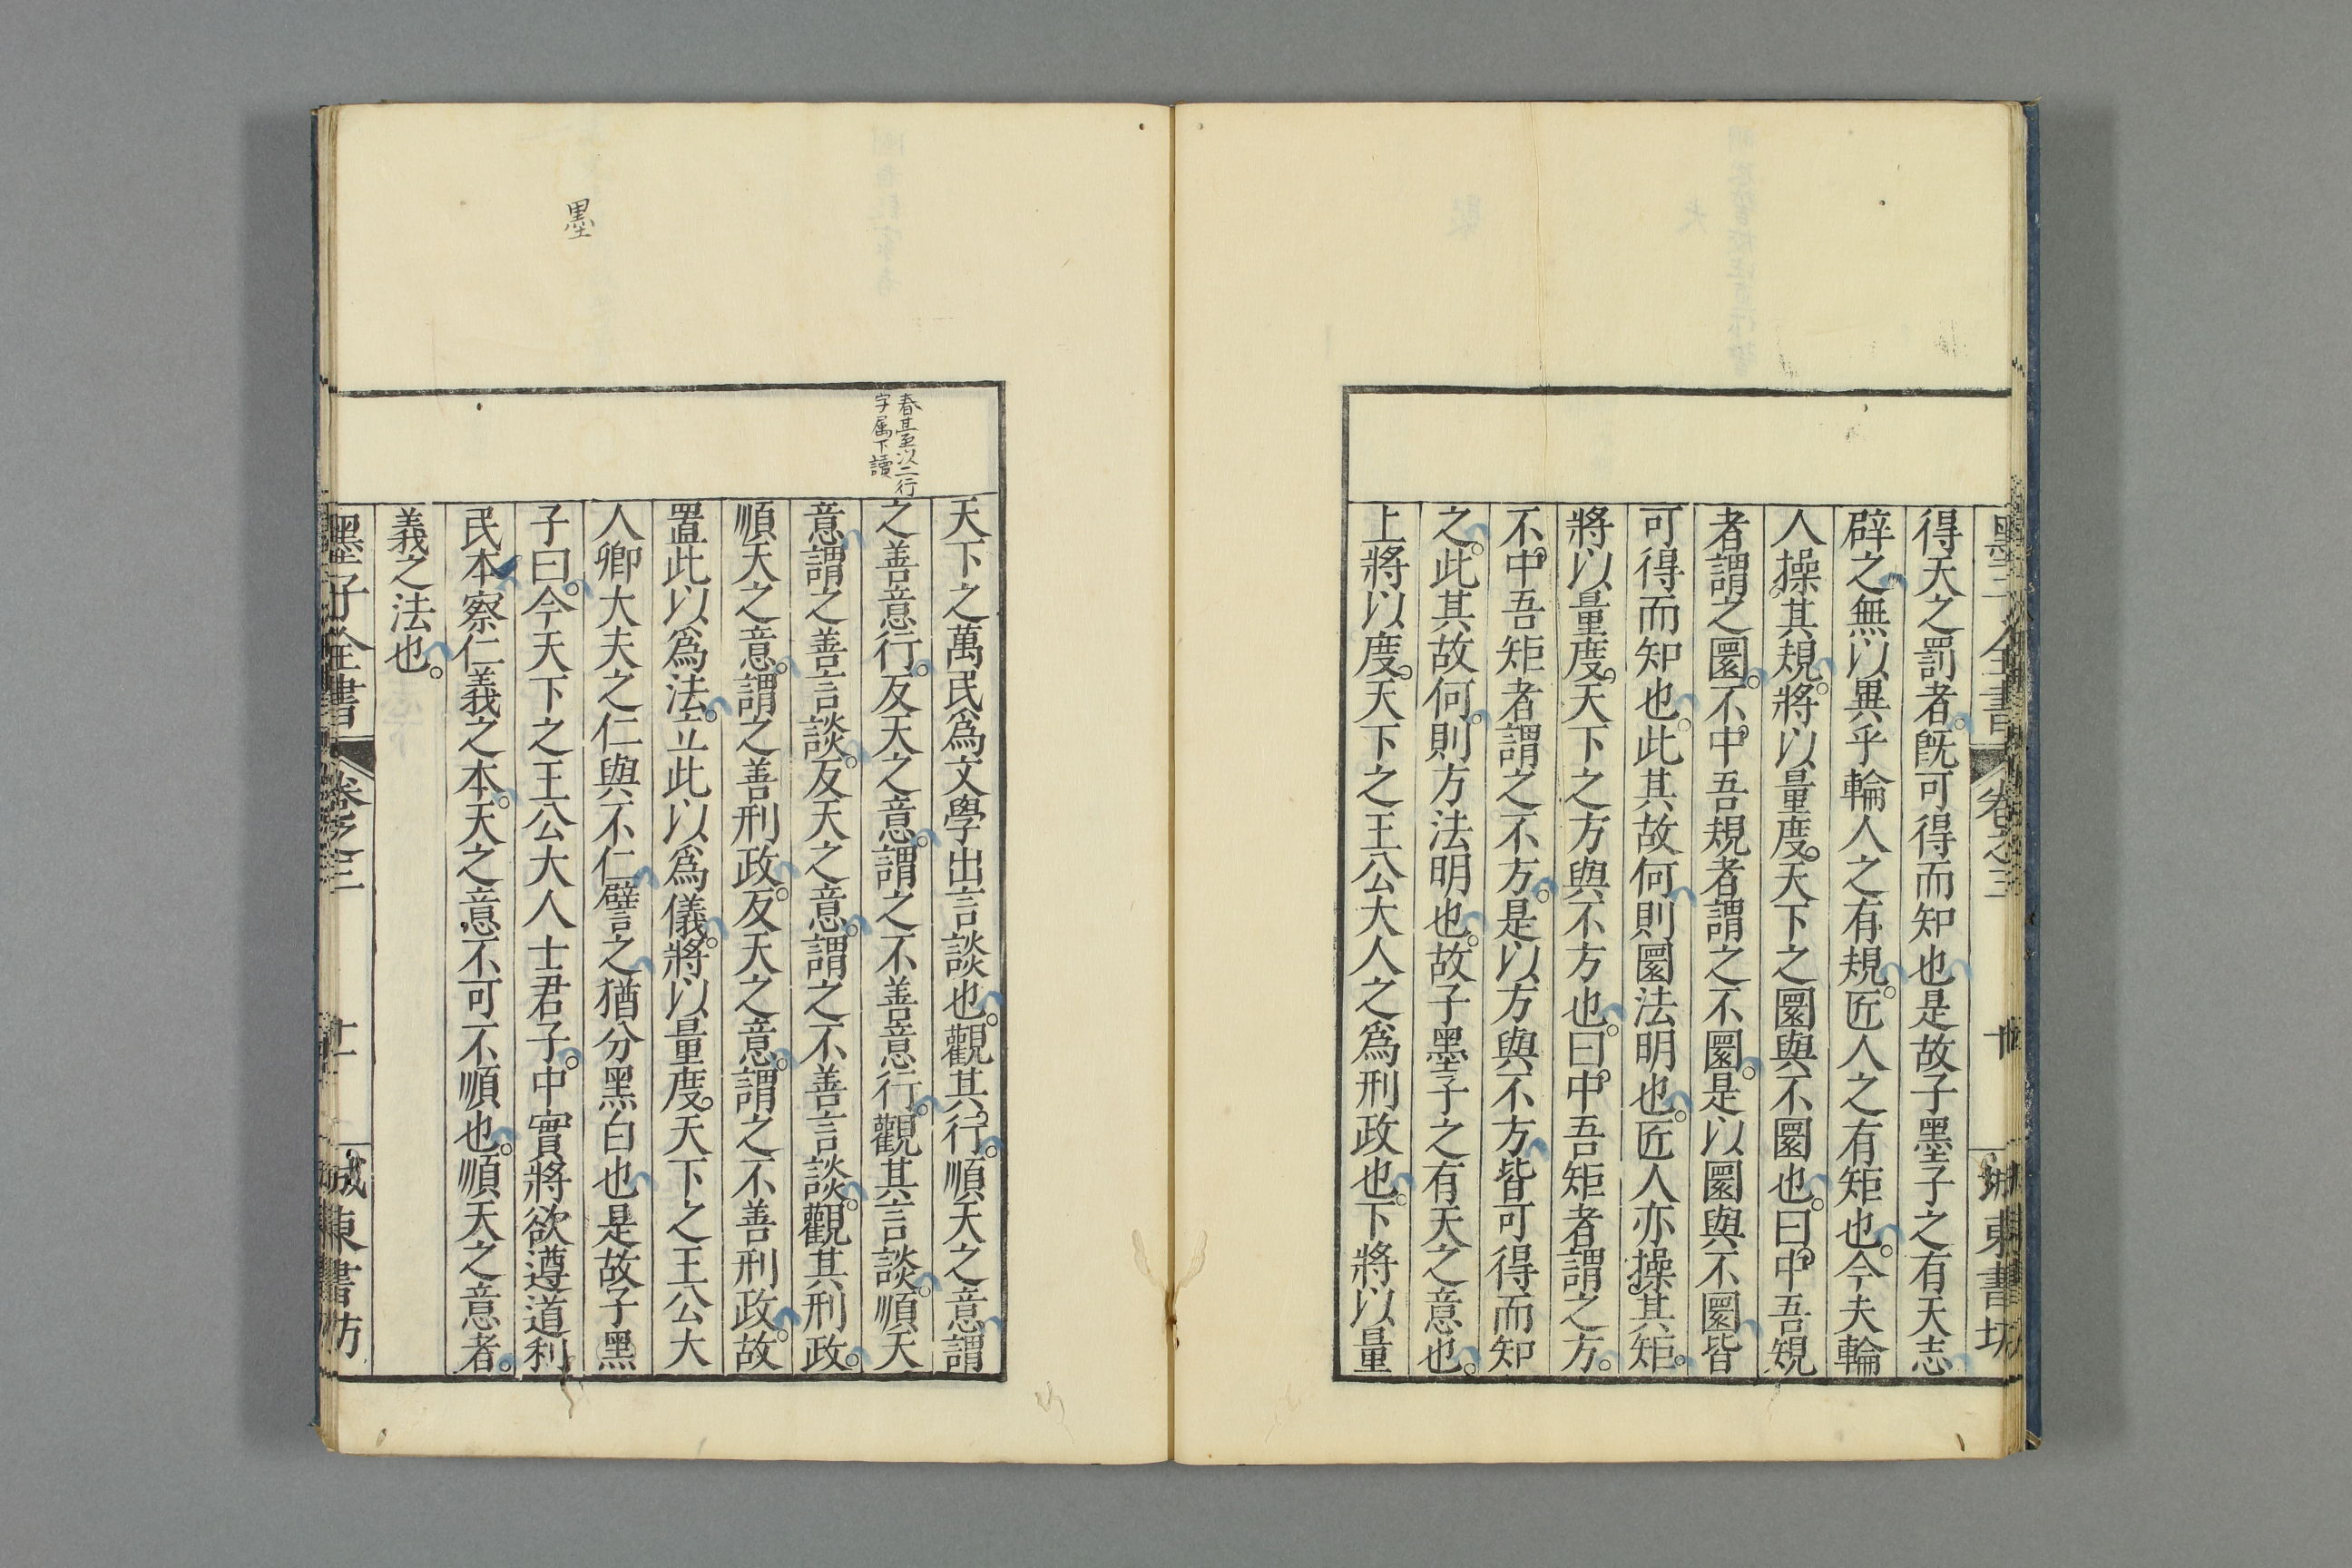 墨子全書 卷之三 十 城東書坊
得天之罰者旣可得而知也是故子墨子之有天志
辟之無以異乎輪人之有規。匠人之有矩也。今夫輪
人操其規。將以量度。天下之圜與不圜也。曰。中吾規
者謂之圜。不中吾規者謂之不圜。是以圜與不圜皆
可得而知也。此其故何則圜法明也。匠人亦操其矩。
將以量度。天下之方與不方也。曰。中吾矩者謂之方。
不中吾矩者謂之不方。是以方與不方皆可得而知
之。此其故何。則方法明也。故子墨子之有天之意也。
上將以度。天下之王公大人之爲刑政也。下將以量
天下之萬民爲文學出言談也。觀其行。順天之意謂
之善意行。反天之意。謂之不善意行。觀其言談。順天
意謂之善言談。反天之意。謂之不善言談。觀其刑政。
順天之意。謂之善刑政。反天之意。謂之不善刑政。故
置此以爲法。立此以爲儀。將以量度。天下之王公大
人卿大夫之仁與不仁譬之猶分黑白也是故子黑
子曰。今天下之王公大人士君子。中實將欲遵道利
民本察仁義之本。天之意不可不順也。順天之意者。
義之法也。
墨子全書 卷之三 十一 城東書坊
春甚至以二行
字属下讀
墨